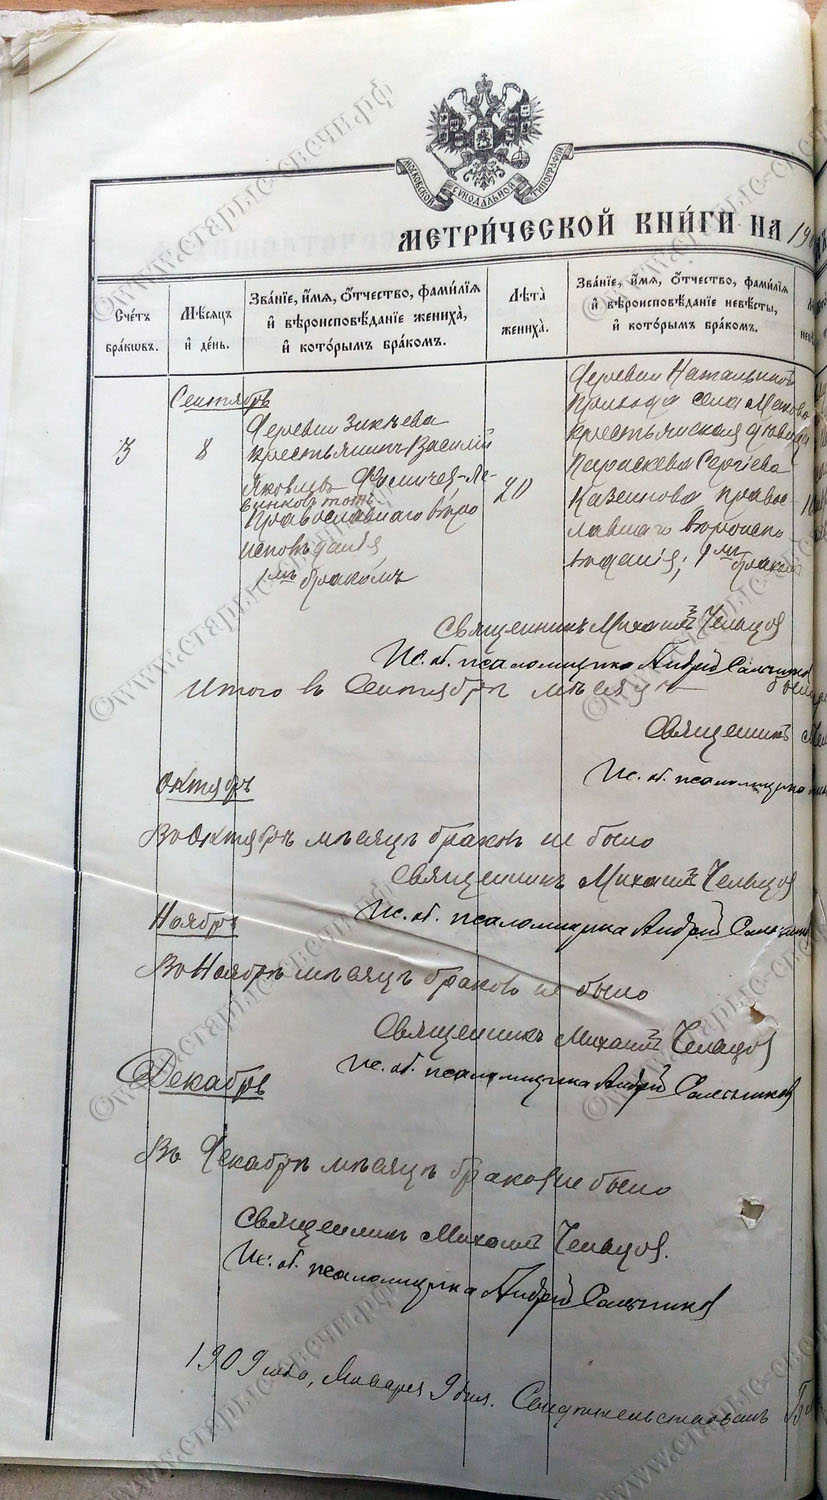 МОСКОВСКОЙ СѴНОДАЛЬНОЙ ТИПОГРАФІИ
МЕТРИ́ЧЕСКОЙ КНИ́ГИ НА 19
Сче́тъ бра́кѡвъ.
Мѣ́сяцъ и҆ де́нь.
Зва́нїе, и҆́мя, ѻ҆́тчество, фами́лїя и҆ вѣроисповѣ́данїе жениха̀, и҆ кото́рымъ бра́комъ.
Лѣта̀ жениха̀.
Зва́нїе, и҆́мя, ѻ҆́тчество, фами́лїя и҆ вѣроисповѣ́данїе невѣ́сты, и҆ кото́рымъ бра́комъ.
Сентябрь
3
8
Деревни Зикѣева
крестьянинъ Василій
Яковлевъ
Православнаго вѣро
исповѣданія,
1мъ бракомъ
20
Деревни
Прихода села
крестьянская дѣвица
Параскева Сергіева
Казеннова правос
лавнаго вѣроиспо
вѣданія; 1мъ бракомъ
Священникъ Михаилъ Чельцов
Ис. об. псаломщика Андрей Сальников
Итого въ Сентябрѣ мѣсяцѣ
Священникъ
Ис. об. псаломщика
Октябрь
Въ Октябрѣ мѣсяцѣ браковъ не было
Священникъ Михаилъ Чельцов
Ис. об. псаломщика Андрей
Ноябрь
Въ Ноябрѣ мѣсяцѣ браковъ не было
Священникъ Михаилъ Чельцов
Ис. об. псаломщика Андрей Сальников
Декабрь
Въ Декабрѣ мѣсяцѣ браков не было
Священникъ Михаилъ Чельцов.
Ис. об. псаломщика Андрей Сальников
1909 года, Января 9 дня. Свидѣтельствовалъ
©www.старые-свечи.рф